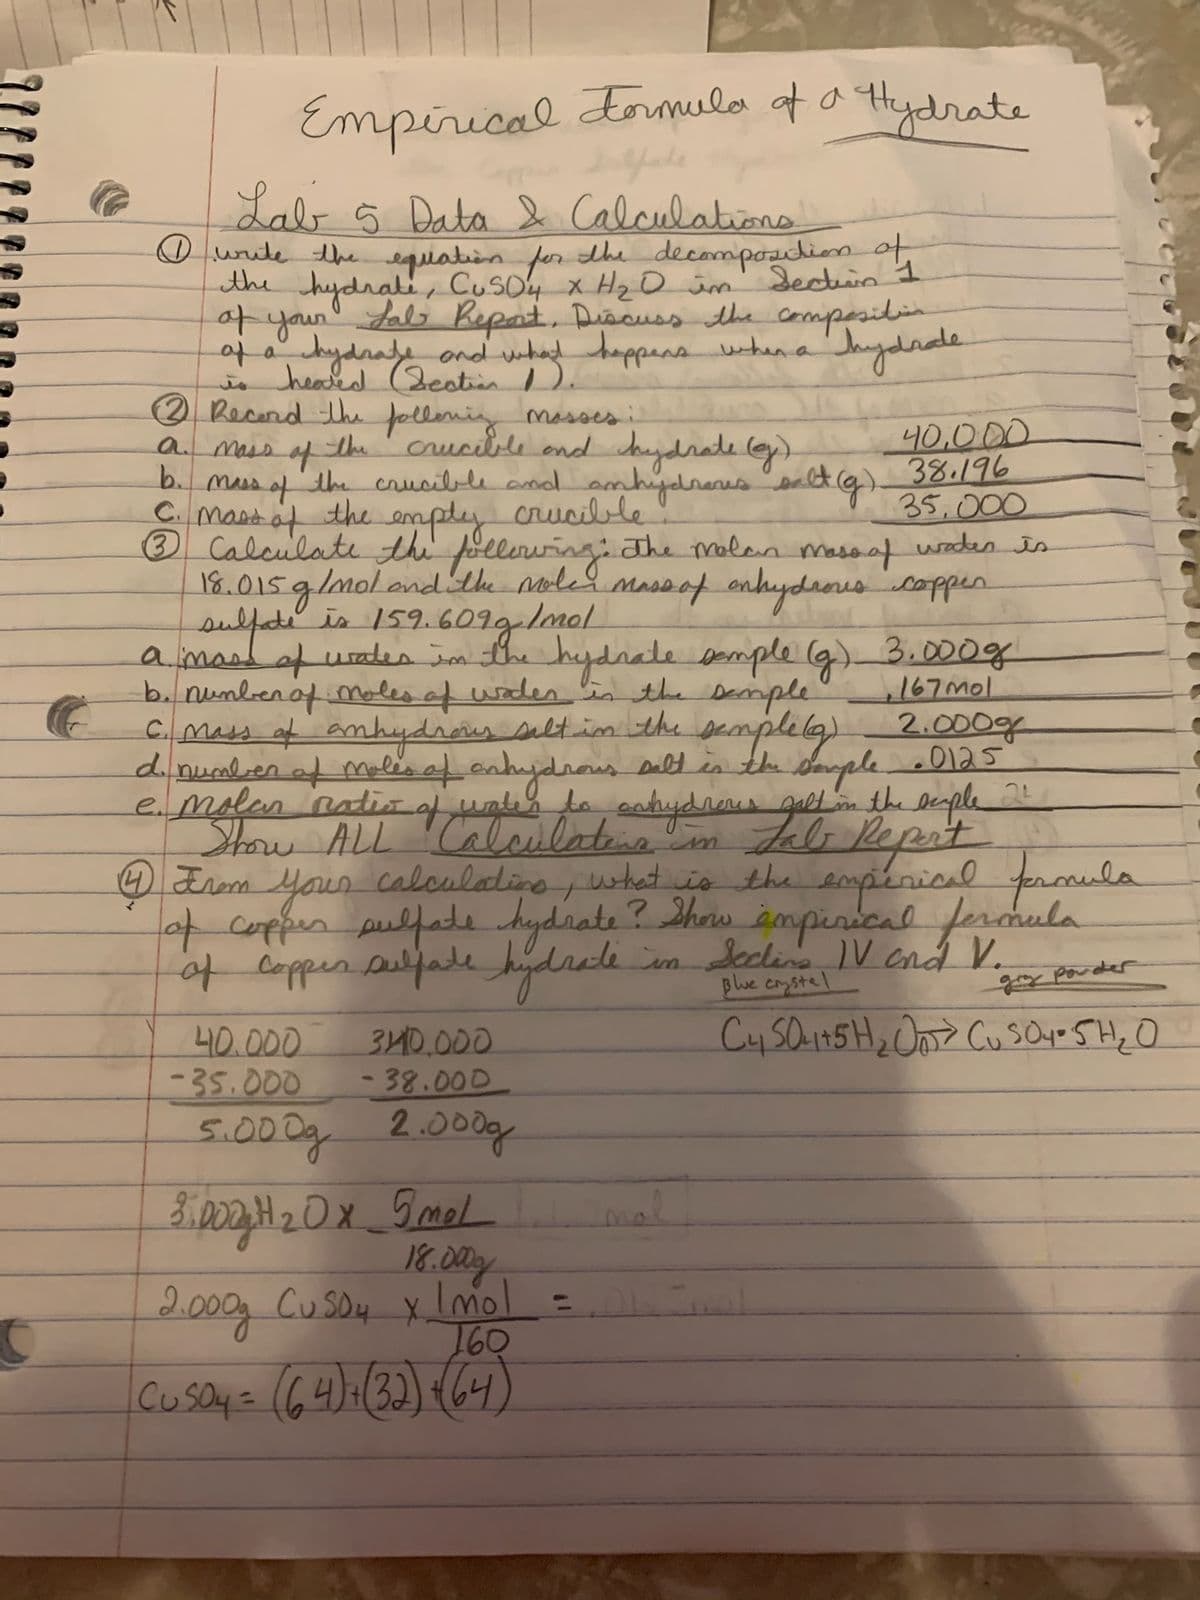 Empirical Formula of a Hydrate
Lab 5 Data & Calculations
① write the equation for the decomposition of
the hydrate, CuSO4 x H2O in Section 1
of your Lab Report. Discuss the composition
of a hydrate and what happens when a hydrate
is heated (Section 1).
② Record the following masses:
a. mass of the crucible and hydrate (g) 40.000
b. mass of the crucible and anhydrous salt (g) 38.196
C. mass of the empty crucible. 35.000
③ Calculate the following: The molar mass of water is
18.015 g/mol and the molar mass of anhydrous copper
sulfate is 159.609g/mol
a. mass of water in the hydrate sample (g) 3.000g
b. number of moles of water in the sample .167mol
C. mass of anhydrous salt in the sample (g) 2.000g
d. number of moles of anhydrous salt in the sample .0125
e. Molar ratio of water to anhydrous salt in the sample
Show ALL Calculations in Lab Report
④ From your calculations, what is the empirical formula
of copper sulfate hydrate? Show empirical formula
of copper sulfate hydrate in Sections IV and V.
Blue crystal gray powder
40.000 40.000 CuSO4+5H2O → CuSO4•5H2O
-35.000 -38.000
5.000g 2.000g
3.000g H2O x 5mol
18.000g
2.000g CuSO4 x 1mol =
160
CuSO4= (64)+(32)+(64)